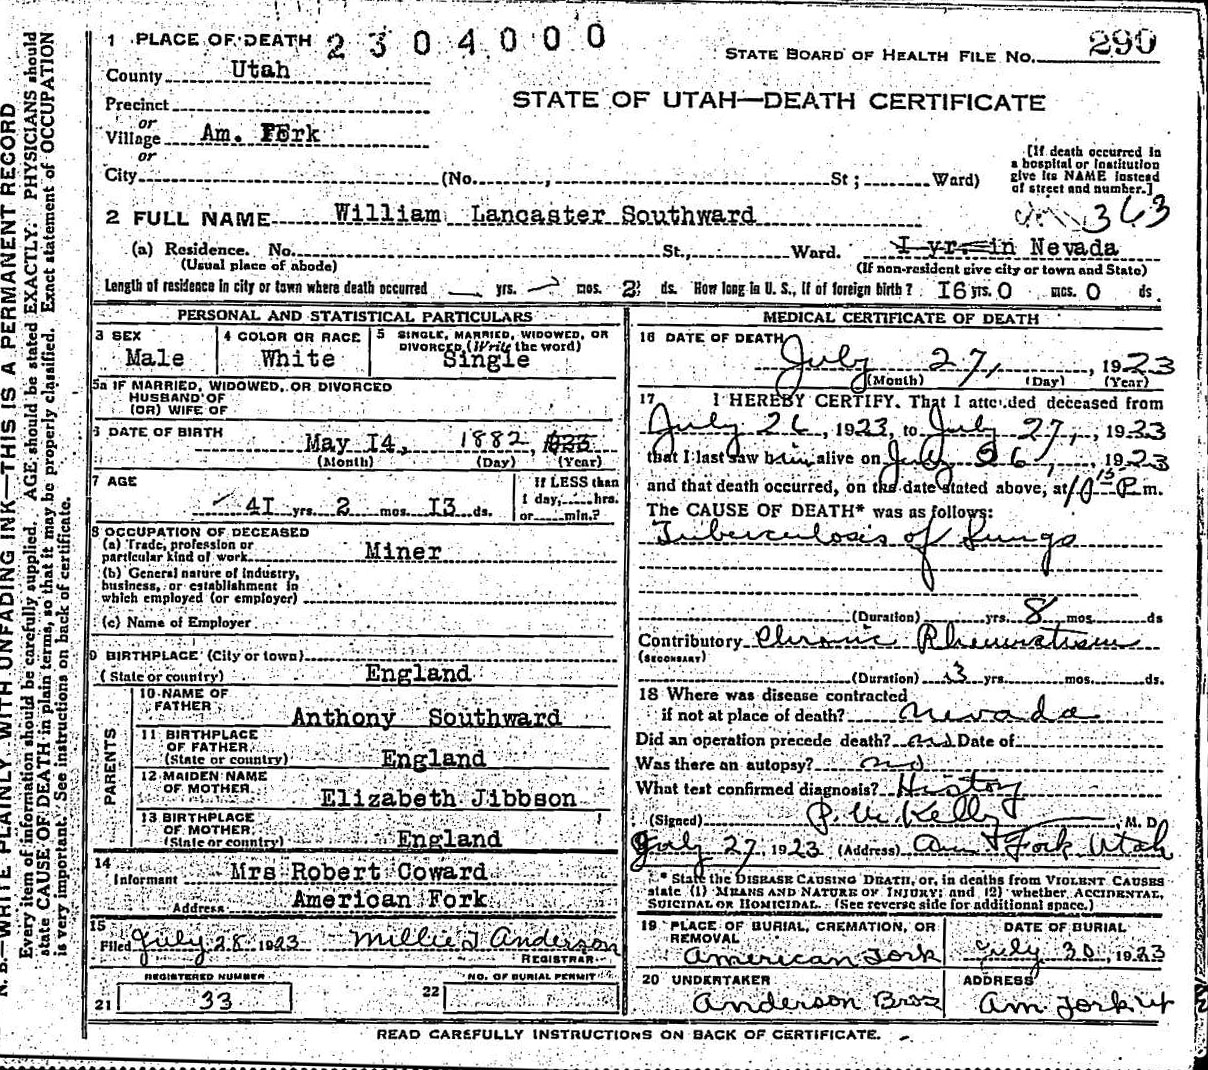 1 PLACE OF DEATH 2304000
STATE BOARD OF HEALTH FILE No. 290
County Utah
Precinct
STATE OF UTAH—DEATH CERTIFICATE
or
Village Am. FErk
or
City (No. , St; Ward)
[If death occurred in
a hospital or institution
give its NAME instead
of street and number.]
363
2 FULL NAME William Lancaster Southward
(a) Residence. No. St., Ward. I yr. in Nevada
(Usual place of abode) (If non-resident give city or town and State)
Length of residence in city or town where death occurred — yrs. — mos. 2 ds. How long in U. S., if of foreign birth? I6 yrs. 0 mos. 0 ds.
PERSONAL AND STATISTICAL PARTICULARS
3 SEX
Male
4 COLOR OR RACE
White
5 SINGLE, MARRIED, WIDOWED, OR
DIVORCED (Write the word)
Single
5a IF MARRIED, WIDOWED, OR DIVORCED
HUSBAND OF
(OR) WIFE OF
6 DATE OF BIRTH
May I4, 1882, 1923
(Month) (Day) (Year)
7 AGE
4I yrs. 2 mos. I3 ds.
If LESS than
1 day, hrs.
or min.?
8 OCCUPATION OF DECEASED
(a) Trade, profession or
particular kind of work Miner
(b) General nature of industry,
business, or establishment in
which employed (or employer)
(c) Name of Employer
9 BIRTHPLACE (City or town)
(State or country) England
PARENTS
10 NAME OF
FATHER
Anthony Southward
11 BIRTHPLACE
OF FATHER
(State or country) England
12 MAIDEN NAME
OF MOTHER
Elizabeth Jibbson
13 BIRTHPLACE
OF MOTHER
(State or country) England
14
Informant Mrs Robert Coward
Address American Fork
15
Filed July 28 1923 Millie J Anderson
REGISTRAR
REGISTERED NUMBER
21 33
NO. OF BURIAL PERMIT
22
MEDICAL CERTIFICATE OF DEATH
16 DATE OF DEATH
July 27, , 1923
(Month) (Day) (Year)
17 I HEREBY CERTIFY. That I attended deceased from
July 26, 1923, to July 27, , 1923
that I last saw him alive on July 26, 1923
and that death occurred, on the date stated above, at 10 15 P m.
The CAUSE OF DEATH* was as follows:
Tuberculosis of Lungs
(Duration) yrs. 8 mos ds
Contributory Chronic Rheumatism
(SECONDARY)
(Duration) 3 yrs. mos. ds.
18 Where was disease contracted
if not at place of death? Nevada
Did an operation precede death? no Date of
Was there an autopsy? no
What test confirmed diagnosis? History
(Signed) P. M. Kelly, M. D.
July 27, 1923 (Address) Am Fork Utah
* State the DISEASE CAUSING DEATH, or, in deaths from VIOLENT CAUSES
state (1) MEANS AND NATURE OF INJURY; and (2) whether ACCIDENTAL,
SUICIDAL OR HOMICIDAL. (See reverse side for additional space.)
19 PLACE OF BURIAL, CREMATION, OR
REMOVAL
American Fork
DATE OF BURIAL
July 30, 1923
20 UNDERTAKER
Anderson Bros
ADDRESS
Am Fork Ut
READ CAREFULLY INSTRUCTIONS ON BACK OF CERTIFICATE.
N. B.—WRITE PLAINLY WITH UNFADING INK—THIS IS A PERMANENT RECORD
Every item of information should be carefully supplied. AGE should be stated EXACTLY. PHYSICIANS should
state CAUSE OF DEATH in plain terms, so that it may be properly classified. Exact statement of OCCUPATION
is very important. See instructions on back of certificate.